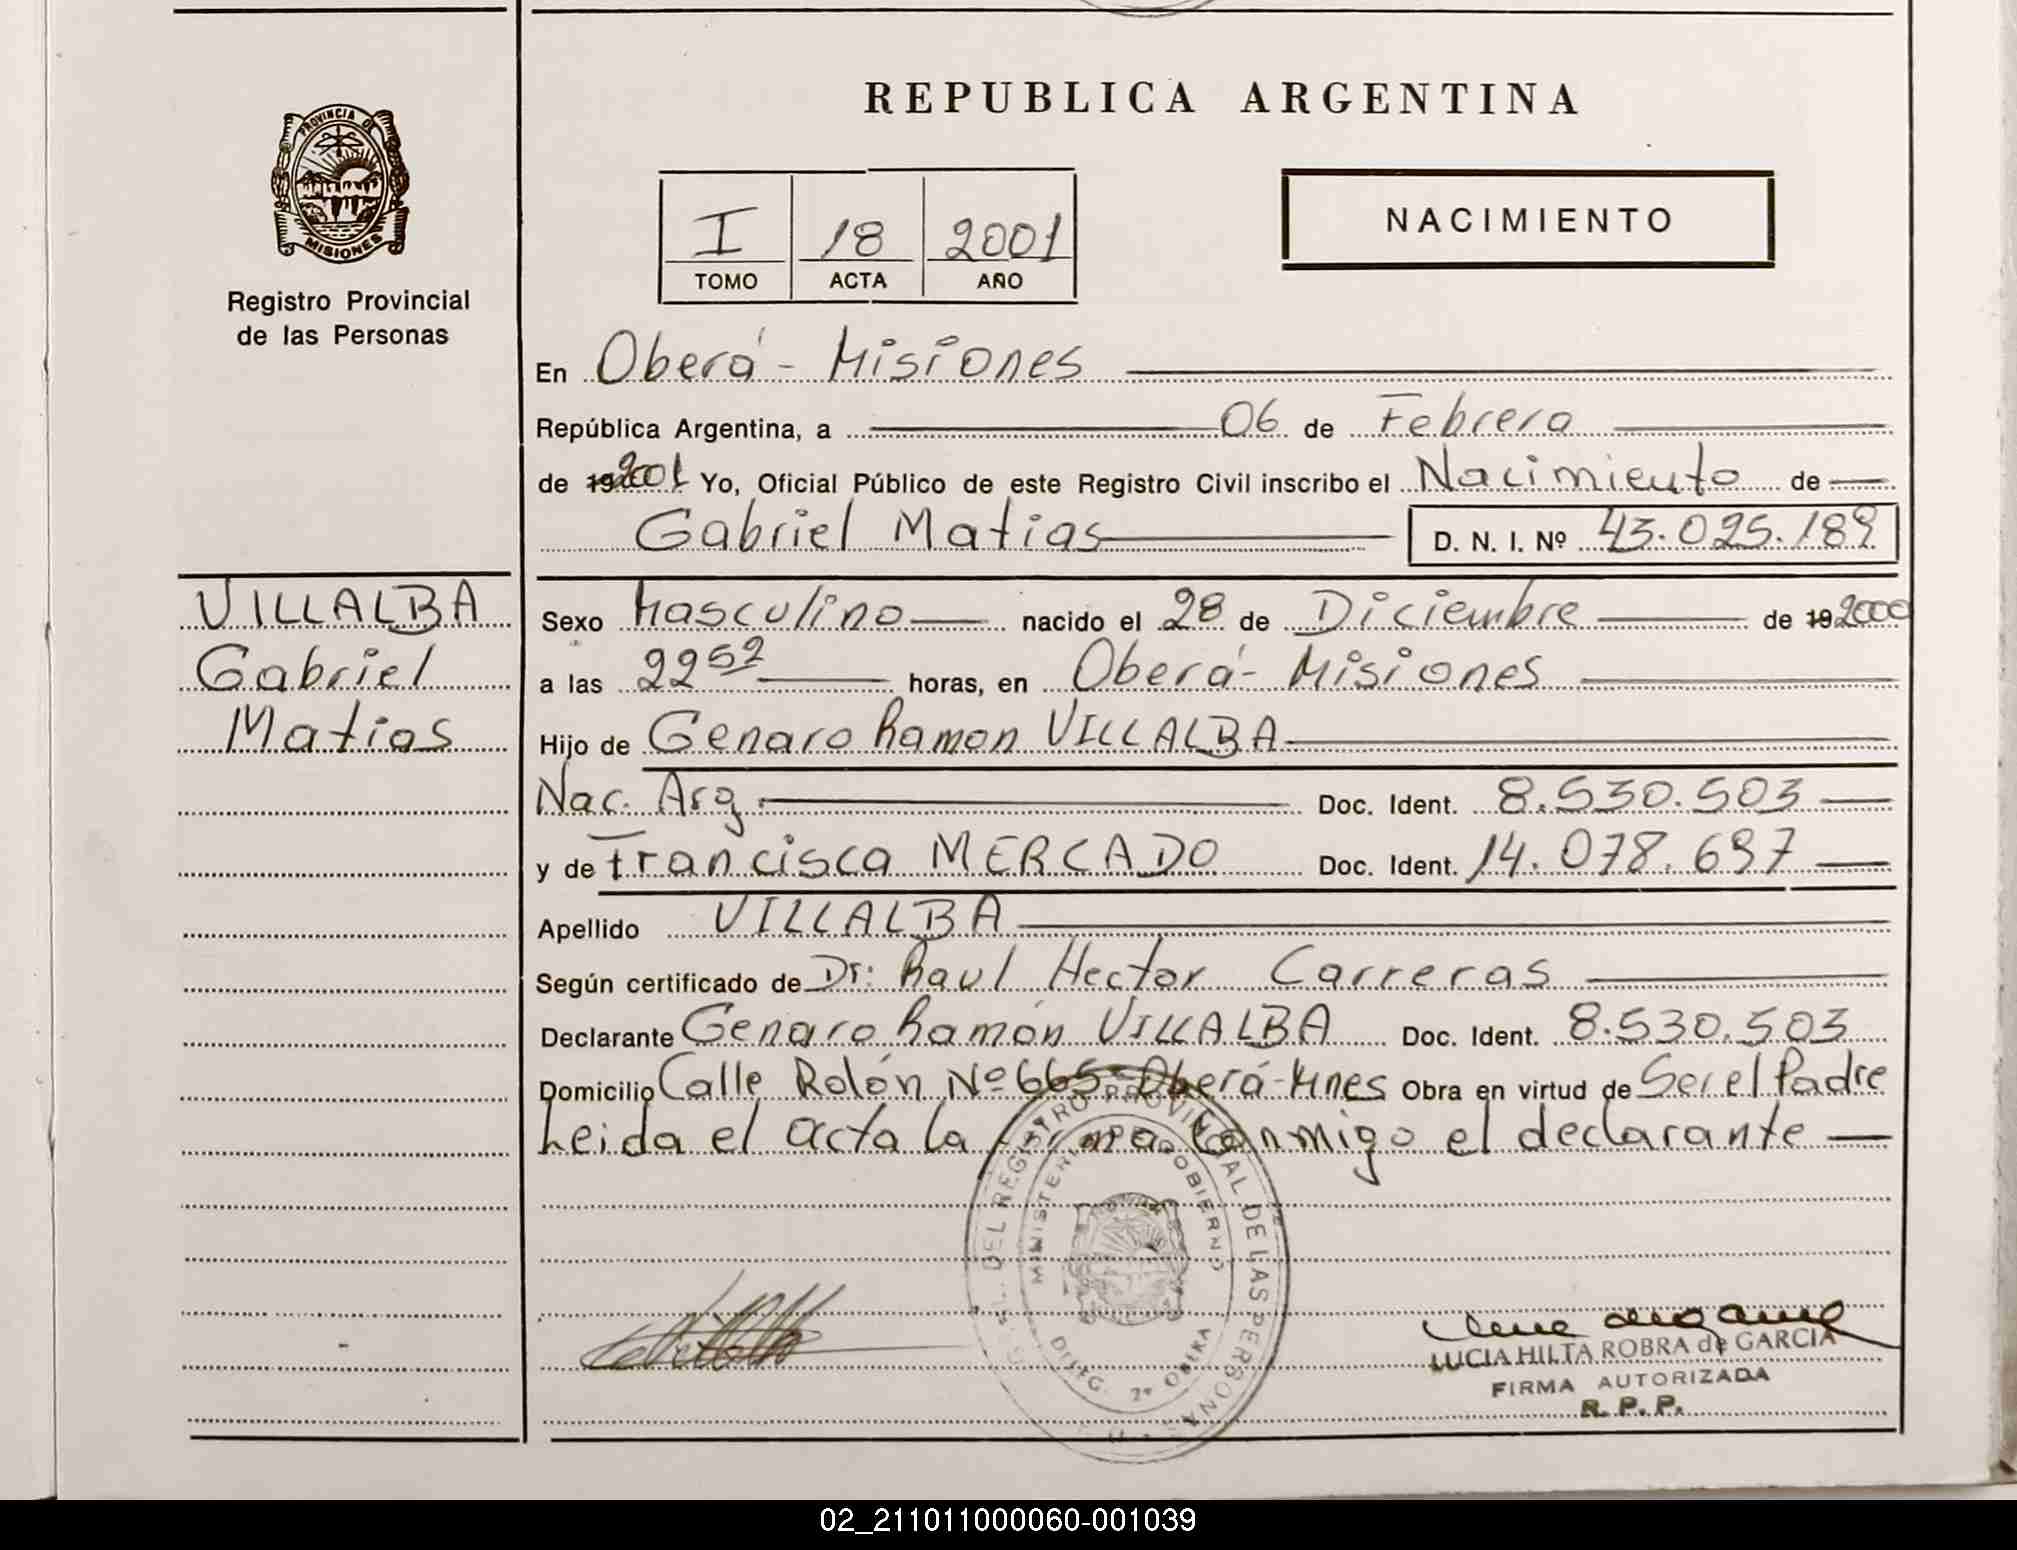 REPUBLICA ARGENTINA
PROVINCIA DE
MISIONES
Registro Provincial
de las Personas
I 18 2001
TOMO ACTA AÑO
NACIMIENTO
En Oberá - Misiones
República Argentina, a 06 de Febrero
de 19 2001 Yo, Oficial Público de este Registro Civil inscribo el Nacimiento de
Gabriel Matias D. N. I. Nº 43.025.189
VILLALBA
Gabriel
Matias
Sexo Masculino nacido el 28 de Diciembre de 19 2000
a las 2252 horas, en Oberá - Misiones
Hijo de Genaro Ramon VILLALBA
Nac. Arg. Doc. Ident. 8.530.503
y de Francisca MERCADO Doc. Ident. 14.078.697
Apellido VILLALBA
Según certificado de Dr: Raul Hector Carreras
Declarante Genaro Ramón VILLALBA Doc. Ident. 8.530.503
Domicilio Calle Rolón Nº 665 - Oberá - Mnes Obra en virtud de Ser el Padre
Leida el acta la firma Conmigo el declarante
DEL REGISTRO PROVINCIAL DE LAS PERSONAS
MINISTERIO DE GOBIERNO
DELEG. 2ª OBERA
LUCIA HILTA ROBRA de GARCIA
FIRMA AUTORIZADA
R. P. P.
02_211011000060-001039